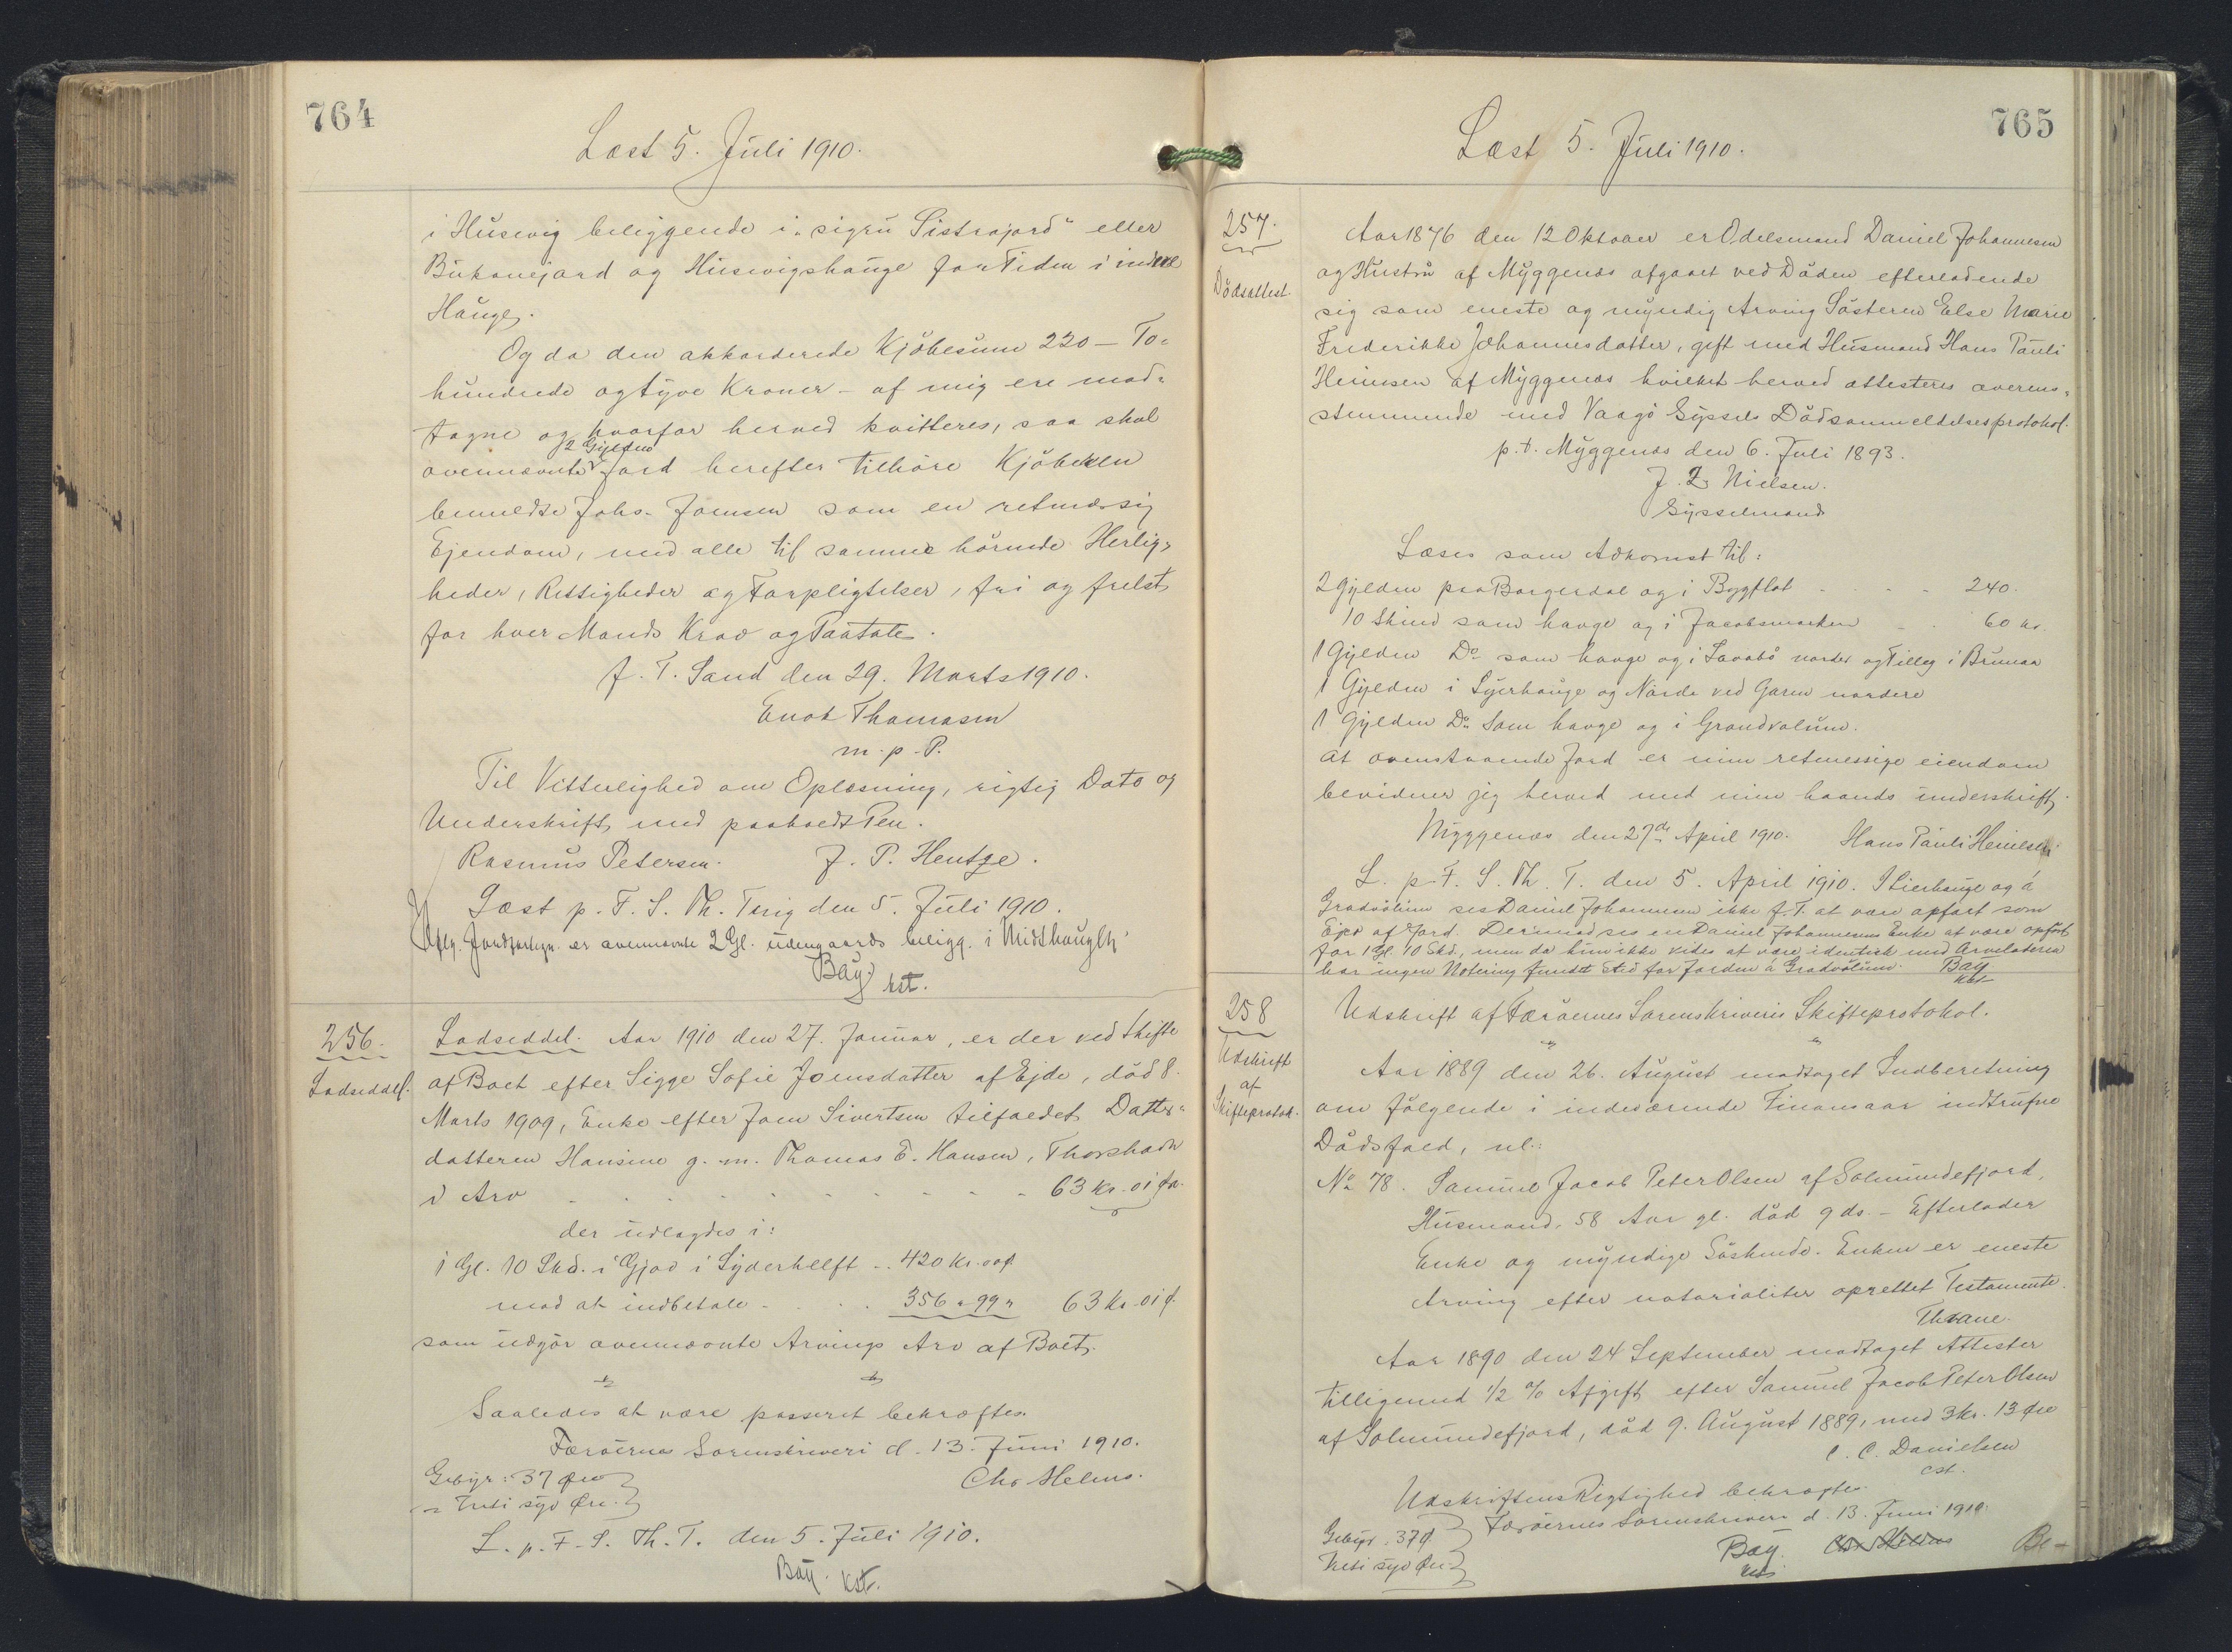 764
Læst 5. Juli 1910.
i Husevig beliggende i "sigru Sistrajord" eller
Bukonejord og Husevigshauge for Tiden i indre
Hauge.
Og da den akkorderede Kjöbesum 220 — To-
hundrede og tyve Kroner - af mig ere mod-
tagne og hvorfor herved kvitteres, saa skal
2 Gylden
ovennævnte Jord herefter tilhöre Kjöberen
bemeldte Johs. Joensen som en retmæssig
Ejendom, med alle til samme hörende Herlig-
heder, Rettigheder og Forpligtelser, fri og frelst
for hver Mands Krav og Paatale.
f. T. Sand den 29. Marts 1910.
Enok Thomasen
m. p. P.
Til Vitterlighed om Oplæsning, rigtig Dato og
Underskrift med paaholdt Pen.
Rasmus Petersen. J. P. Hentze.
Læst p. F. S. Th. Tting den 5. Juli 1910.
Iflg. Jordfortegn. er ovennævnte 2 Gl. udengaards beligg. i Midthaugen.
Bay
kst.
256.
Lodseddel.
Lodseddel. Aar 1910 den 27. Januar, er der ved Skifte
af Boet efter Sigge Sofie Joensdatter af Ejde, död 8.
Marts 1909, Enke efter Joen Sivertsen tilfaldet Datter-
datteren Hansine g. m. Thomas E. Hansen, Thorshavn
i Arv . . . . . . . . . . 63 Kr. 01 Öre
der udlagdes i:
1 Gl. 10 Skd. i Gjov i Syderhelft .. 420 Kr. 00 Ø
mod at indbetale . . . . 356 " 99 " 63 Kr. 01 Ø.
som udgör ovennævnte Arvings Arv af Boet.
Saaledes at være passeret bekræftes.
Færöernes Sorenskriveri d. 13. Juni 1910.
Gebyr: 37 Øre
= Treti syv Øre.
Chr. Helms.
L. p. F. S. Th. T. den 5. Juli 1910.
Bay.
kst.
765
Læst 5. Juli 1910.
257.
Dödsattest.
Aar 1876 den 12 Oktober er Odelsmand Daniel Johannesen
og Hustru af Myggenæs afgaaet ved Döden efterladende
sig som eneste og myndig Arving Sösteren Else Marie
Frederikke Johannesdatter, gift med Husmand Hans Pauli
Heinesen af Myggenæs hvilket herved attesteres overens-
stemmende med Vaagö Syssels Dödsanmeldelsesprotokol.
p. t. Myggenæs den 6. Juli 1893.
J. Z. Nielsen.
Sysselmand
Læses som Adkomst til:
2 Gylden paa Borgerdal og i Bygflat . . . . 240.
10 Skind som hauge og i Jacobsmarken . . 60 kr.
1 Gylden Do som hauge og i Lavabö norder og Tilleg i Brunaa
1 Gylden i Lyerhauge og Nörde ved Garen nordere
1 Gylden Do Som hauge og i Grandvalum.
at ovenstaaende Jord er min retmessige eiendom
bevidner jeg herved med min haands underskrift.
Myggenæs den 27de April 1910. Hans Pauli Heinesen
L. p. F. S. Th. T. den 5. April 1910. I Lierhauge og á
Gradvölum ses Daniel Johannesen ikke f. T. at være opfört som
Ejer af Jord. Derimod ses en Daniel Johannesens Enke at være opfört
for 1 Gl. 10 Skd., men da hun ikke vides at være identisk med Arveladeren
har ingen Notering fundet Sted for Jorden á Gradvölum. Bay
kst
258
Udskrift
af
Skifteprotok.
Udskrift af Færöernes Sorenskriveris Skifteprotokol.
Aar 1889 den 26. August modtaget Indberetning
om fölgende i indeværende Finansaar indtrufne
Dödsfald, nl.:
No 78. Samuel Jacob Peter Olsen af Solmundefjord,
Husmand, 58 Aar gl. död 9 ds. - Efterlader
Enke og myndige Söskende. Enken er eneste
Arving efter notarialiter oprettet Testamente.
Thrane.
Aar 1890 den 24 September modtaget Attester
tilligemed 1/2 % Afgift efter Samuel Jacob Peter Olsen
af Solmundefjord, död 9. August 1889, med 3 kr. 13 Øre
C. C. Danielsen
cst.
Udskriftens Rigtighed bekræftes.
Færöernes Sorenskriveri d. 13. Juni 1910.
Gebyr: 37 Ø
Treti syv Øre
Bay.
Chr. Helms
Be-